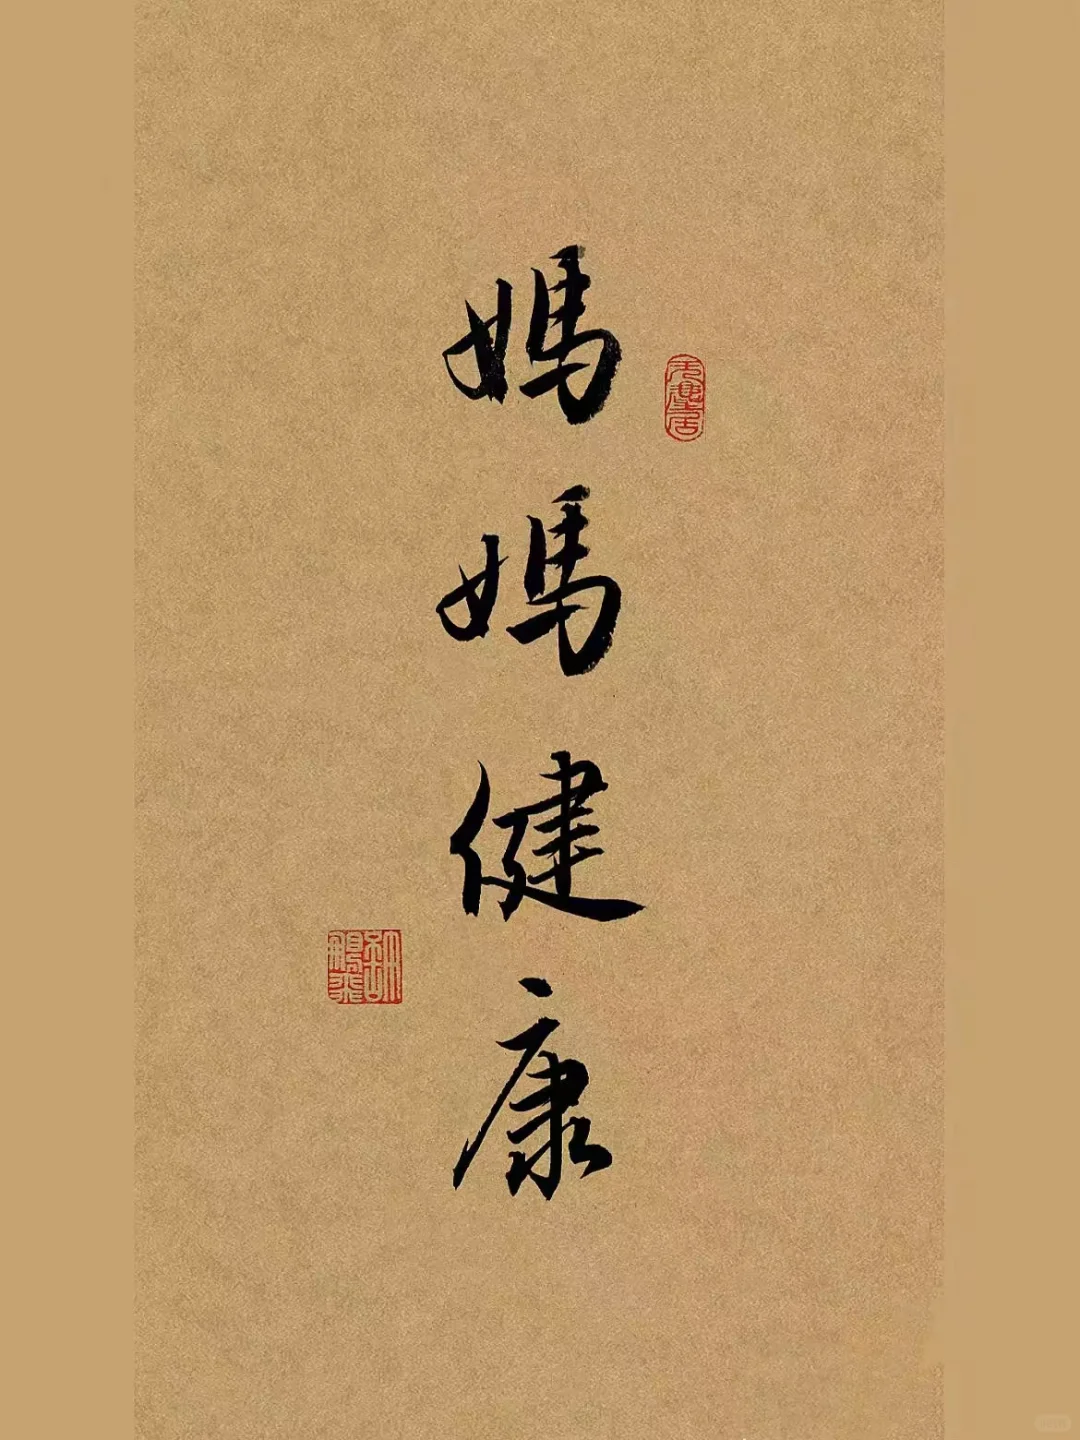 媽媽健康